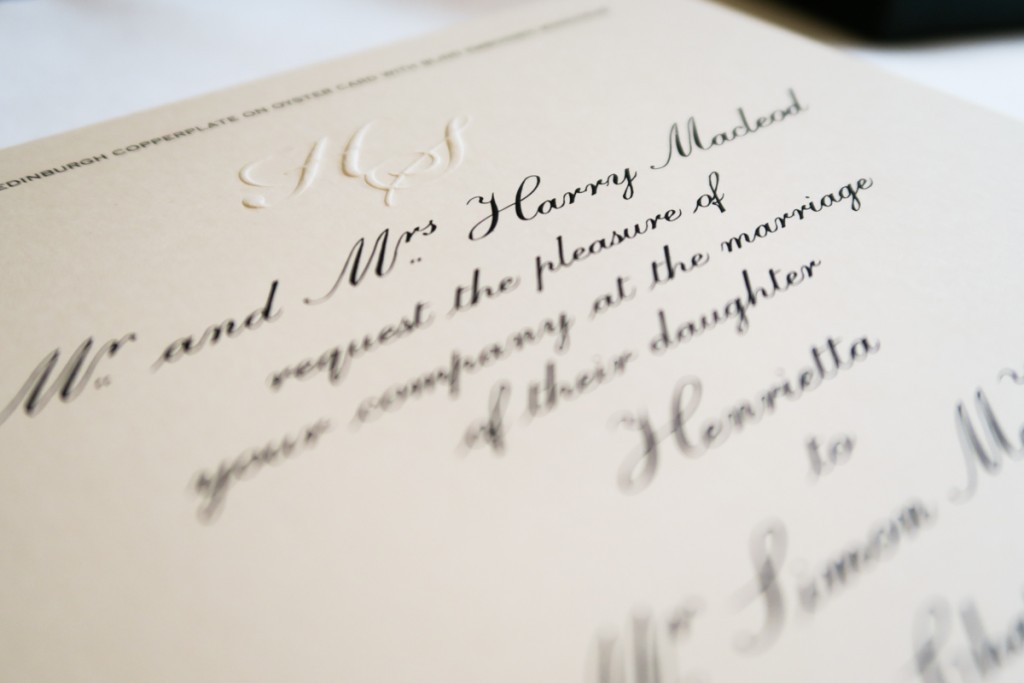 EDINBURGH COPPERPLATE ON OYSTER CARD WITH BLIND EMBOSSED
HS
Mr. and Mrs. Harry Macleod
request the pleasure of
your company at the marriage
of their daughter
Henrietta
to
Mr Simon